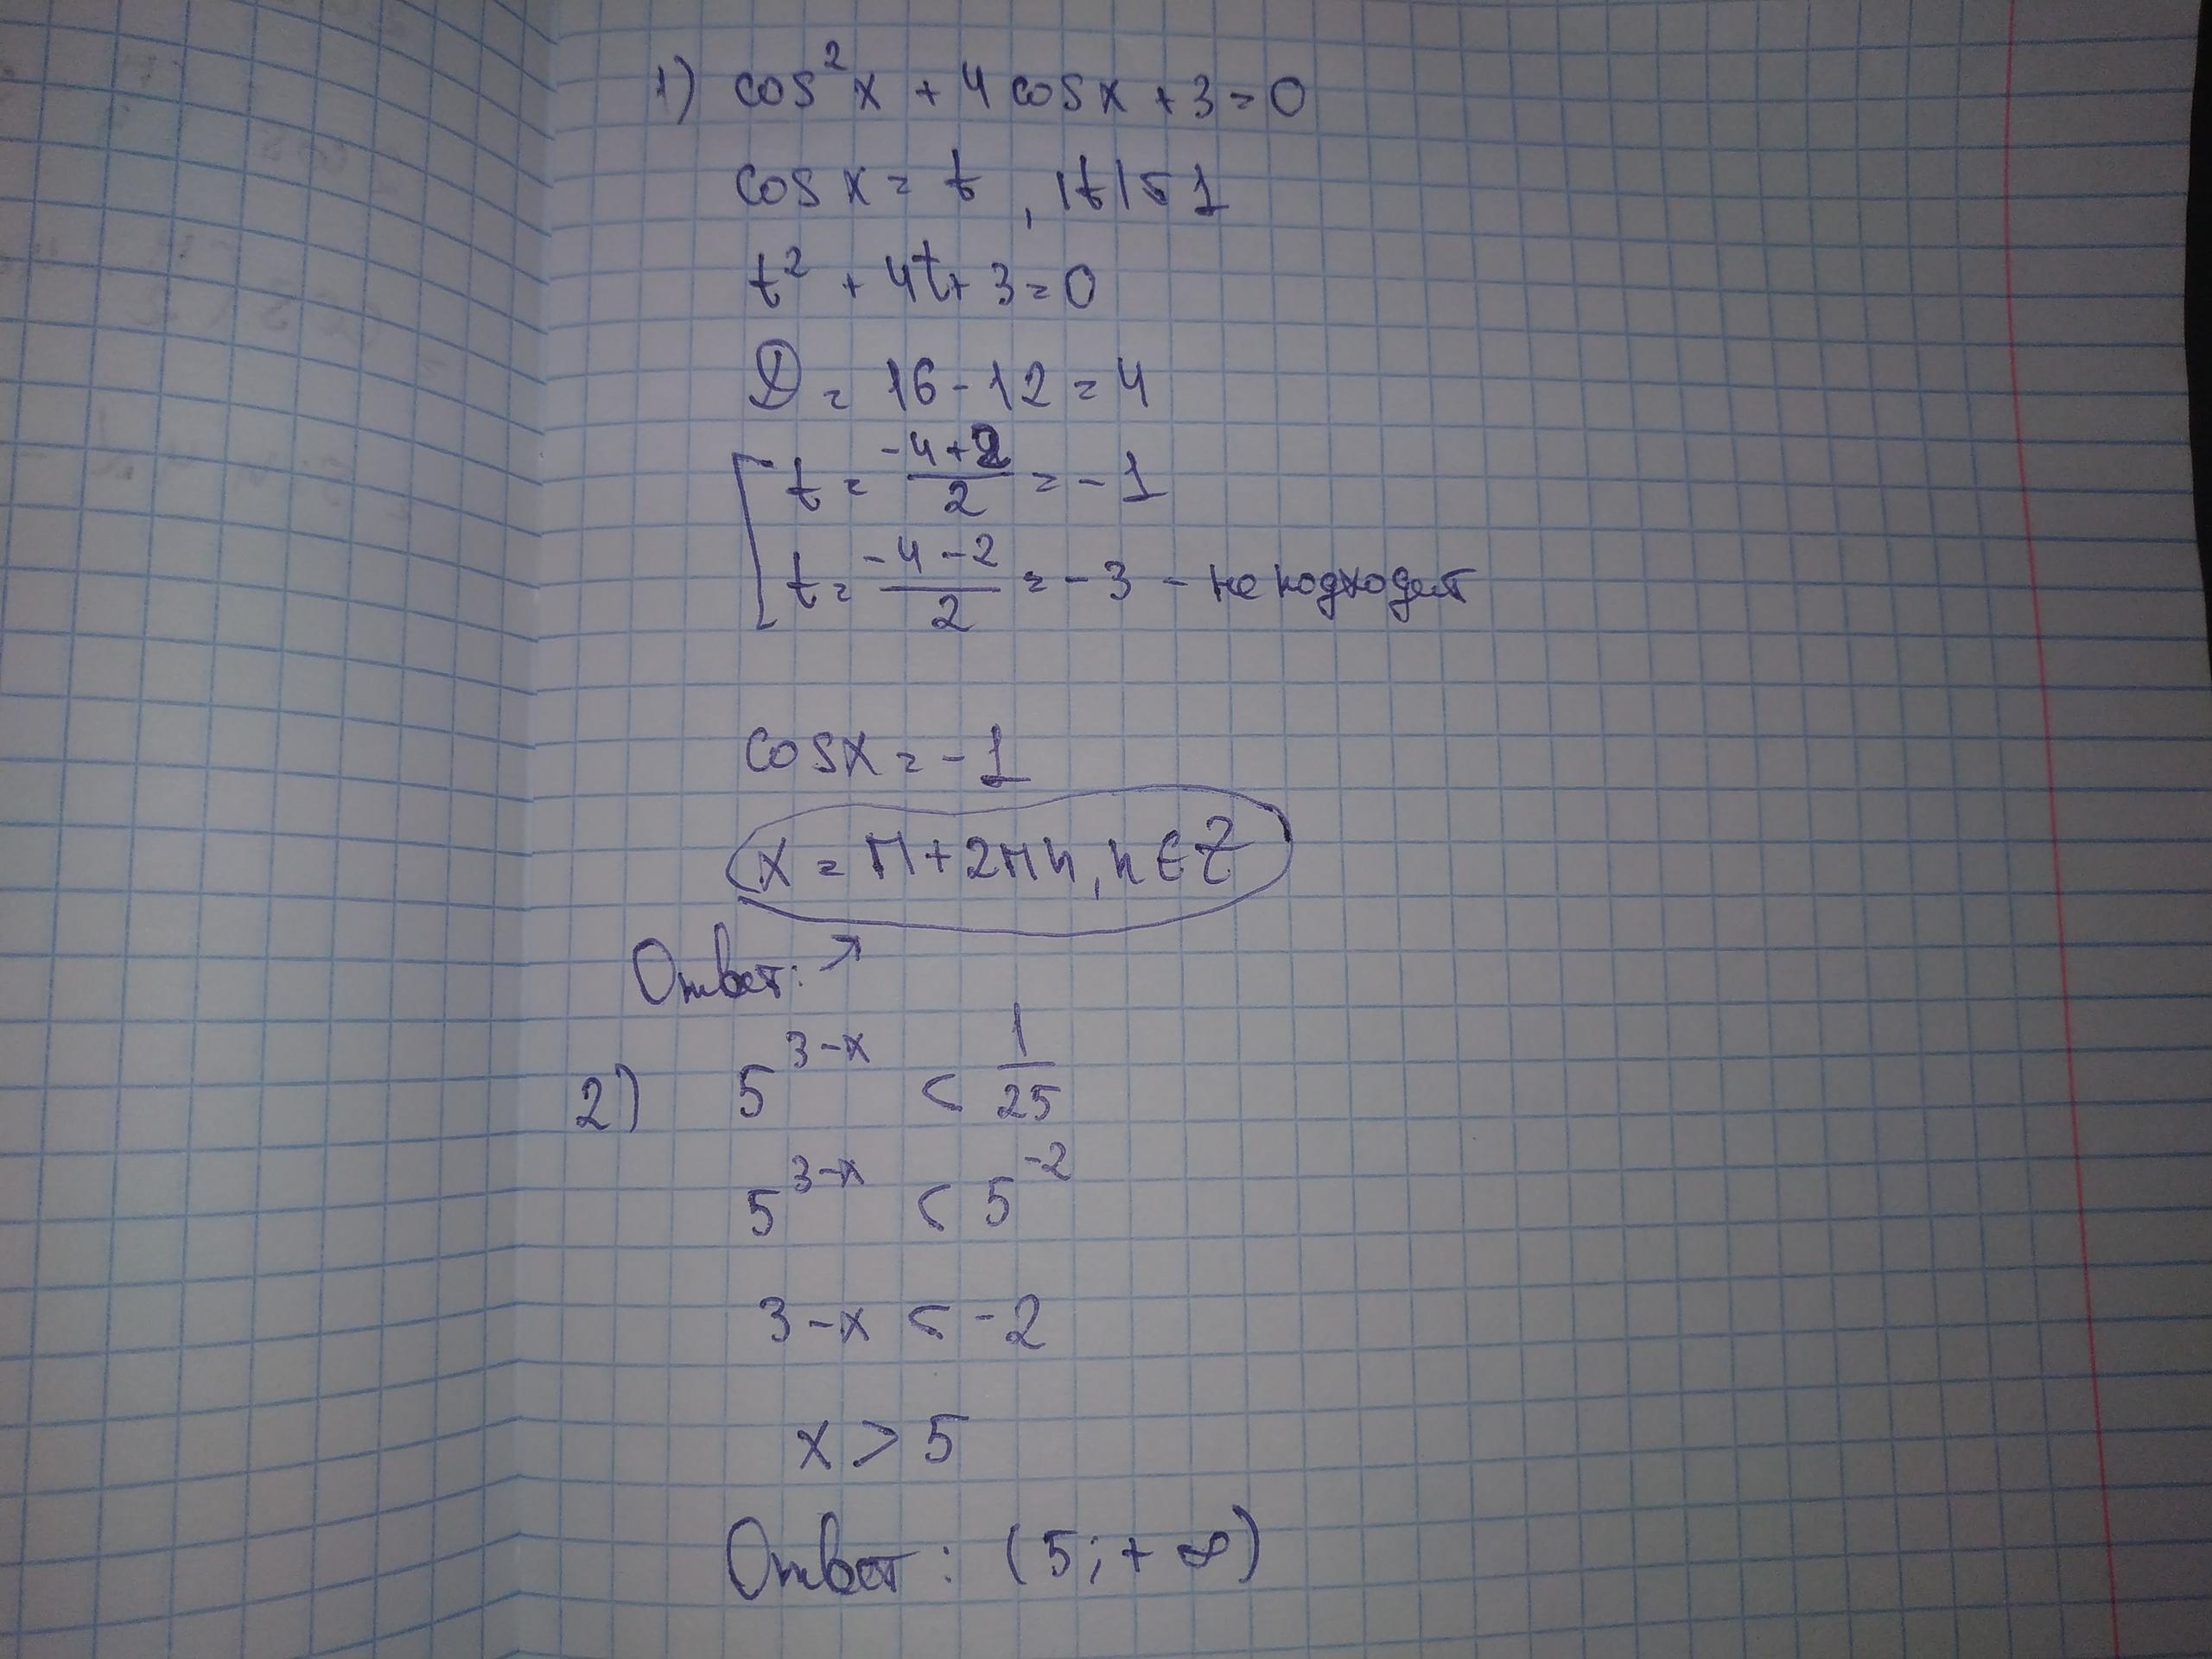 1) cos²x + 4 cos x + 3 = 0
cos x = t, |t| ≤ 1
t² + 4t + 3 = 0
D = 16 - 12 = 4
t = (-4+2)/2 = -1
t = (-4-2)/2 = -3 - не подходит
cos x = -1
x = π + 2πn, n ∈ Z
Ответ: ↗
2) 5^(3-x) < 1/25
5^(3-x) < 5^(-2)
3-x < -2
x > 5
Ответ: (5; +∞)